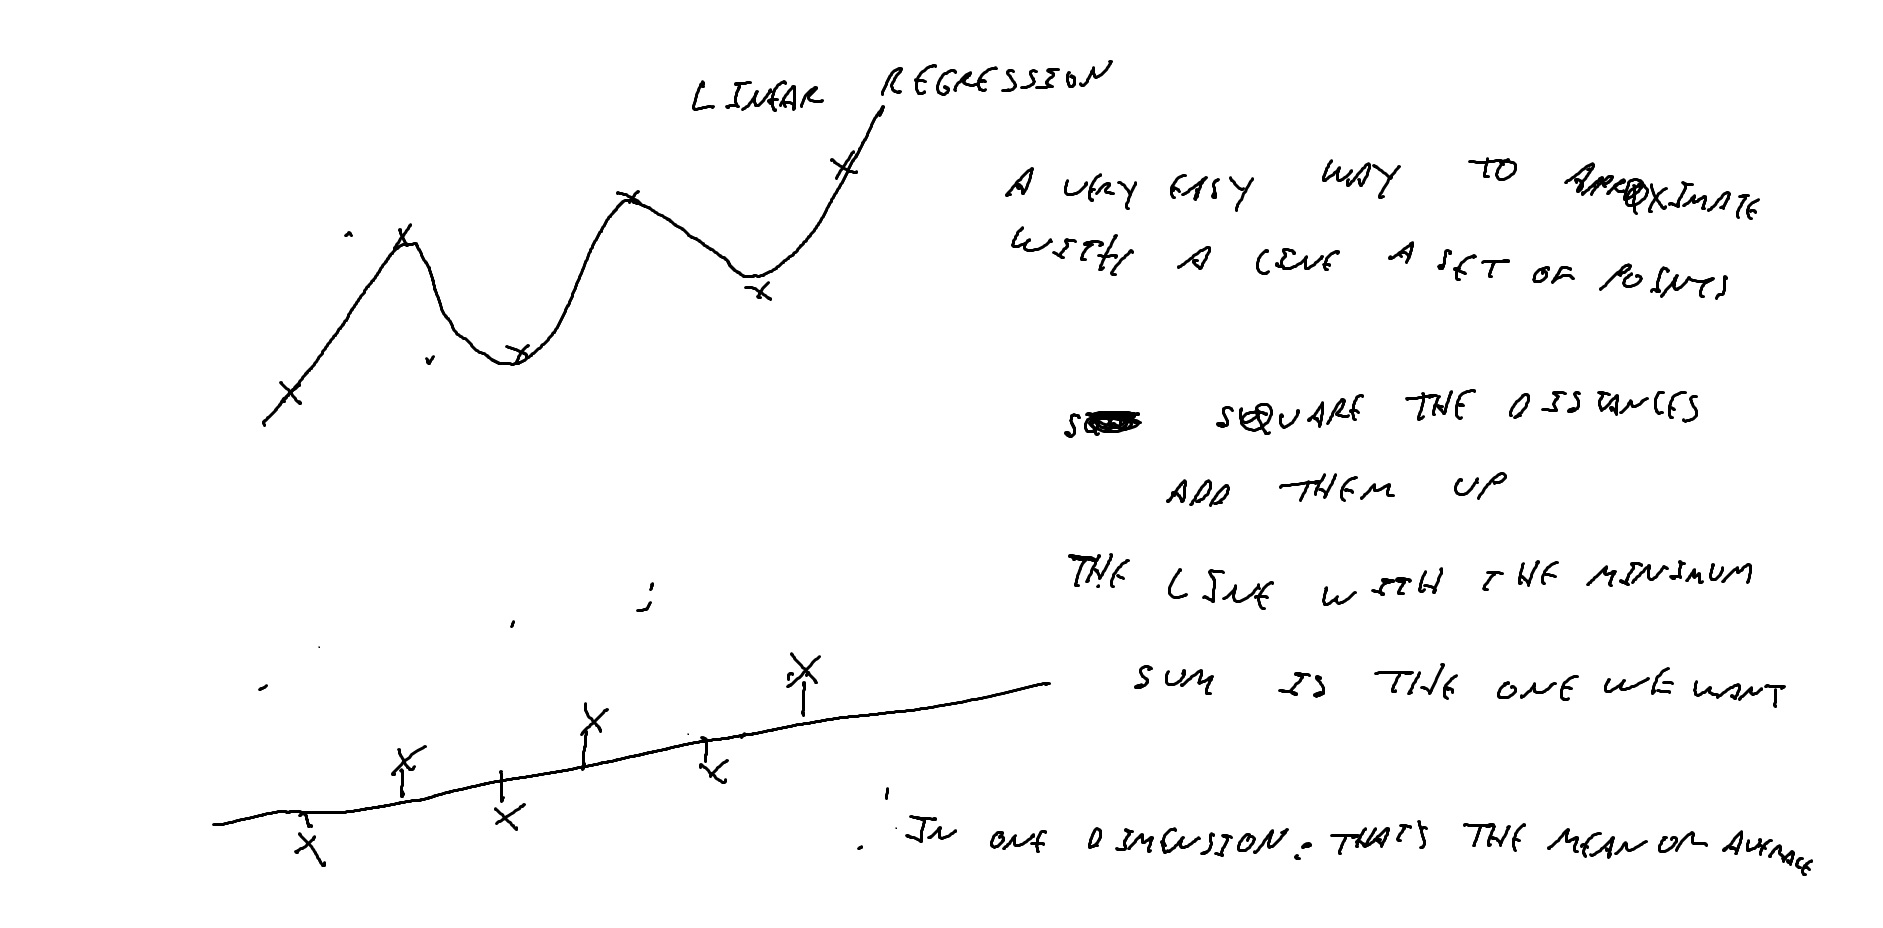 LINEAR REGRESSION
A VERY EASY WAY TO APPROXIMATE
WITH A LINE A SET OF POINTS
SQUARE THE DISTANCES
ADD THEM UP
THE LINE WITH THE MINIMUM
SUM IS THE ONE WE WANT
IN ONE DIMENSION: THAT'S THE MEAN OR AVERAGE